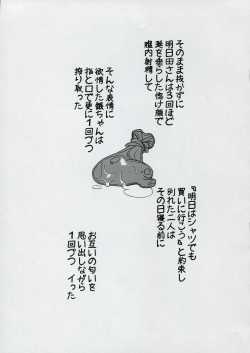 そのまま抜かずに
明日田さんは3回ほど
涎を垂らした惚け顔で
腟内射精して
そんな表情に
欲情した銀ちゃんが
指と口で更に1回づつ
搾り取った
『明日はシャツでも
買いに行こう』と約束し
別れた二人は
その日寝る前に
お互いの匂いを
思い出しながら
1回づつ イった